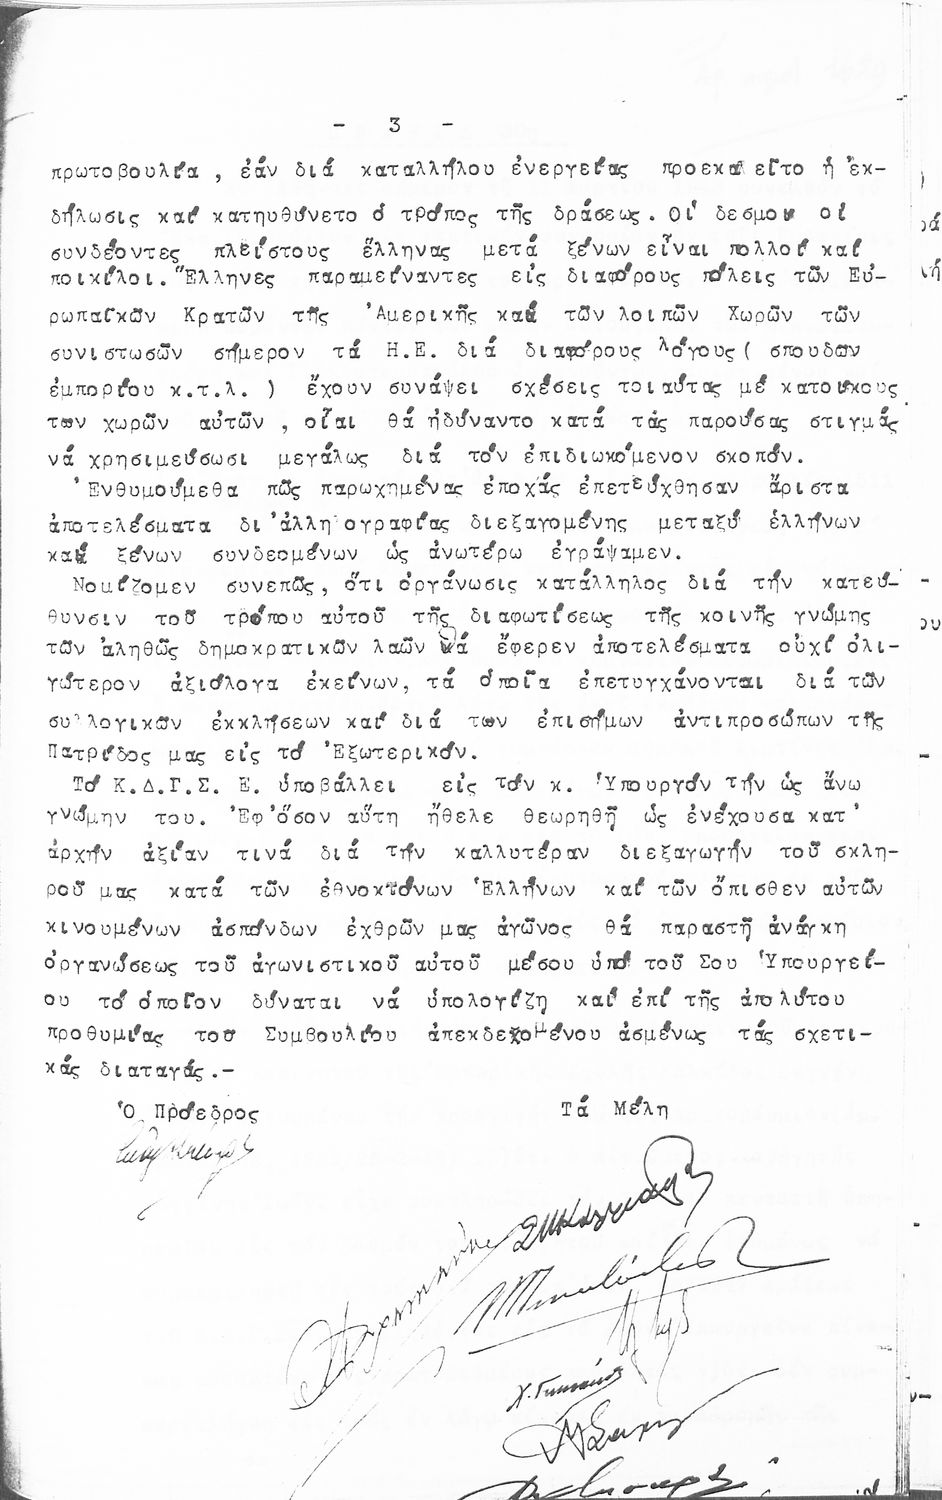 - 3 -
πρωτοβουλία , ἐάν διά καταλλήλου ἐνεργείας προεκαλεῖτο ἡ ἐκ-
δήλωσις καί κατηυθύνετο ὁ τρόπος τῆς δράσεως. Οἱ δεσμοί οἱ
συνδέοντες πλείστους ἕλληνας μετά ξένων εἶναι πολλοί καί
ποικίλοι. Ἕλληνες παραμείναντες εἰς διαφόρους πόλεις τῶν Εὐ-
ρωπαϊκῶν Κρατῶν τῆς Ἀμερικῆς καί τῶν λοιπῶν Χωρῶν τῶν
συνιστωσῶν σήμερον τά Η.Ε. διά διαφόρους λόγους ( σπουδῶν
ἐμπορίου κ.τ.λ. ) ἔχουν συνάψει σχέσεις τοιαύτας μέ κατοίκους
των χωρῶν αὐτῶν , οἷαι θά ἠδύναντο κατά τάς παρούσας στιγμάς
νά χρησιμεύσωσι μεγάλως διά τόν ἐπιδιωκόμενον σκοπόν.
Ἐνθυμούμεθα πῶς παρωχημένας ἐποχάς ἐπετεύχθησαν ἄριστα
ἀποτελέσματα δι'ἀλληλογραφίας διεξαγομένης μεταξύ ἑλλήνων
καί ξένων συνδεομένων ὡς ἀνωτέρω ἐγράψαμεν.
Νομίζομεν συνεπῶς, ὅτι ὀργάνωσις κατάλληλος διά τήν κατεύ-
θυνσιν τοῦ τρόπου αὐτοῦ τῆς διαφωτίσεως τῆς κοινῆς γνώμης
τῶν ἀληθῶς δημοκρατικῶν λαῶν θά ἔφερεν ἀποτελέσματα οὐχί ὀλι-
γώτερον ἀξιόλογα ἐκείνων, τά ὁποῖα ἐπετυγχάνονται διά τῶν
συλλογικῶν ἐκκλήσεων καί διά των ἐπισήμων ἀντιπροσώπων τῆς
Πατρίδος μας εἰς τό Ἐξωτερικόν.
Τό Κ.Δ.Γ.Σ. Ε. ὑποβάλλει εἰς τόν κ. Ὑπουργόν τήν ὡς ἄνω
γνώμην του. Ἐφ'ὅσον αὕτη ἤθελε θεωρηθῆ ὡς ἐνέχουσα κατ'
ἀρχήν ἀξίαν τινά διά τήν καλλυτέραν διεξαγωγήν τοῦ σκλη-
ροῦ μας κατά τῶν ἐθνοκτόνων Ἑλλήνων καί τῶν ὄπισθεν αὐτῶν
κινουμένων ἀσπόνδων ἐχθρῶν μας ἀγῶνος θά παραστῆ ἀνάγκη
ὀργανώσεως τοῦ ἀγωνιστικοῦ αὐτοῦ μέσου ὑπό τοῦ Σου Ὑπουργεί-
ου τό ὁποῖον δύναται νά ὑπολογίζη καί ἐπί τῆς ἀπολύτου
προθυμίας του Συμβουλίου ἀπεκδεχομένου ἀσμένως τάς σχετι-
κάς διαταγάς.-
Ὁ Πρόεδρος Τά Μέλη